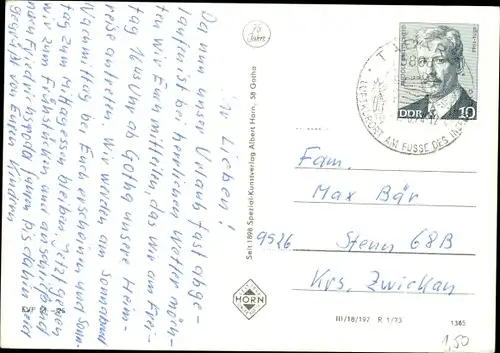 Ihr Lieben!
Da nun unser Urlaub fast abge-
laufen ist bei herrlichen Wetter möch-
ten Euch mitteilen, das wir am Frei-
tag 16 45 Uhr ab Gotha unsere Heim-
reise antreten. Wir werden am Sonnabend
Nachmittag bei Euch erscheinen und Sonn-
tag zum Mittagessen bleiben. Jetzt gehen
wir zum Frühstücken und anschließend
nach Friedrichsroda zum bis dahin seid
gegrüßt von Euren Kindern
EVP
75
Jahre
Seit 1898 Spezial-Kunstverlag Albert Horn, 58 Gotha
HORN
DDR
10
AM FUSSE DES
Fam.
Max Bär
9526 Stenn 68B
Krs. Zwickau
III/18/197 R 1/73
1365
1,50